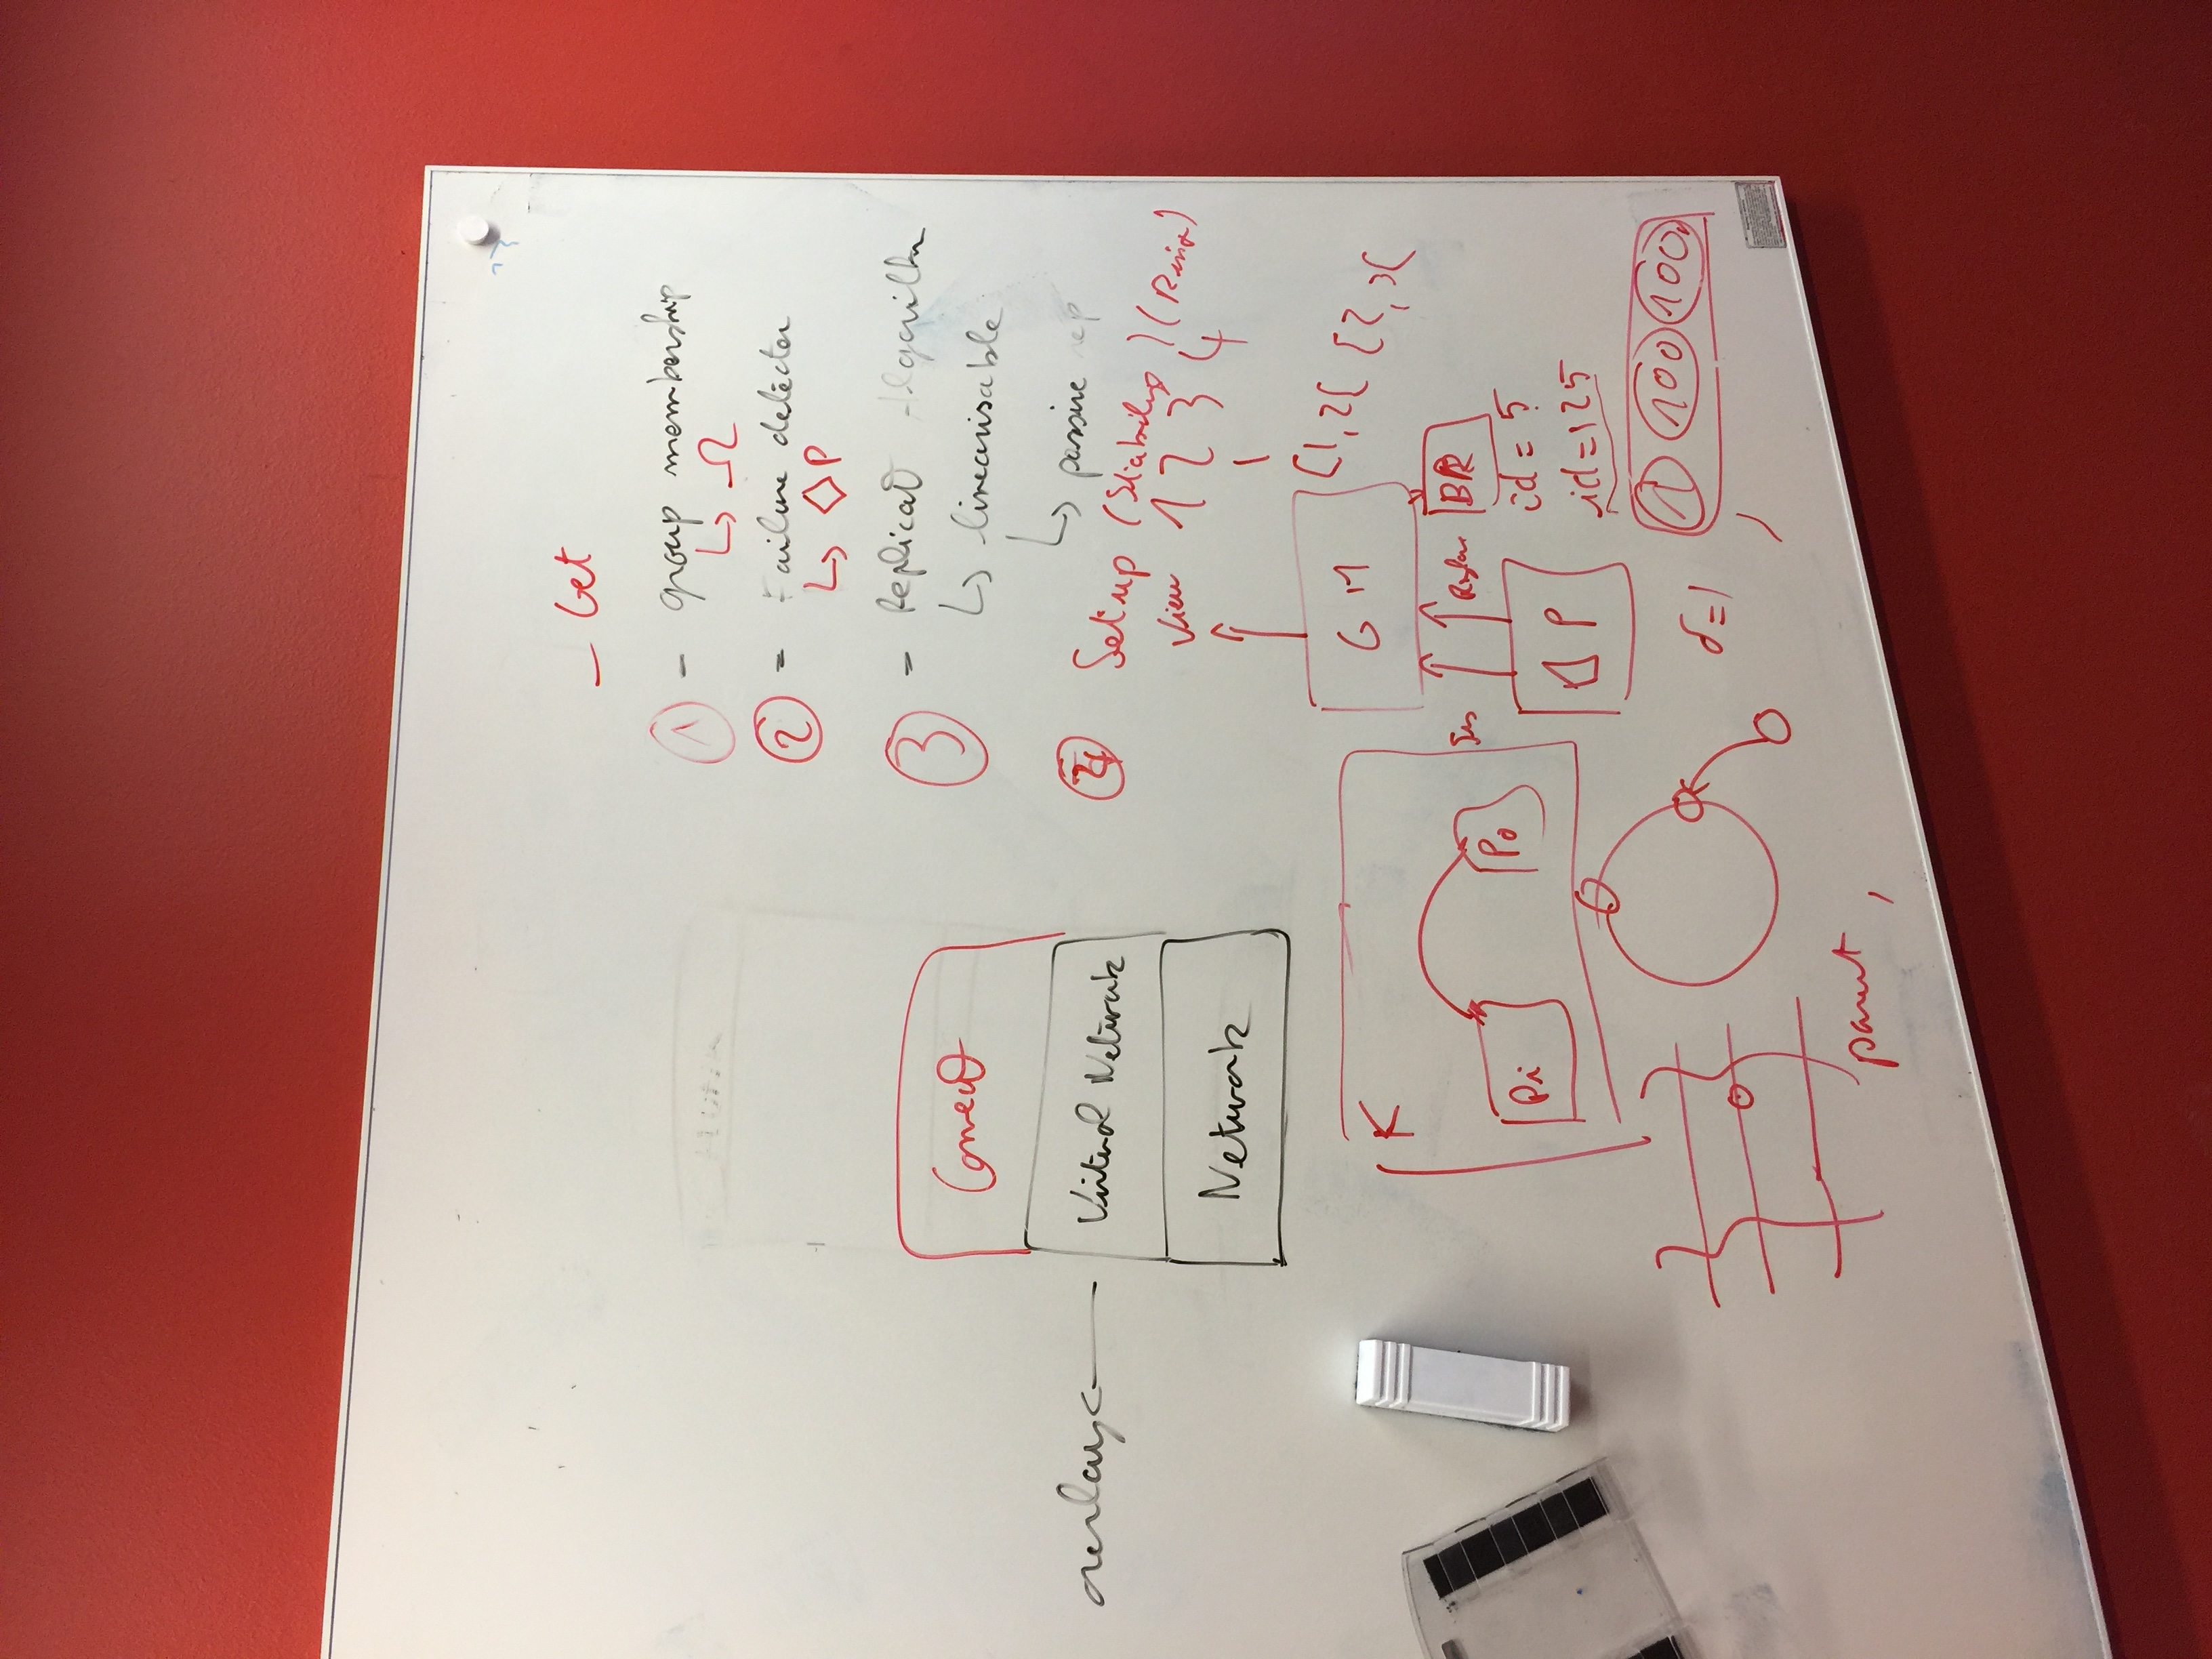 - Get
① - group membership
↳ Ω
② = Failure detector
↳ ◇P
③ = Replicat Algorithm
↳ linearisable
↳ passive rep
④ Set up (Stabilis) (Ring)
View 1 2 3 4
Connect
overlay ← Virtual Network
Network
GM [1,2[ [2,3[
K
Pi Po
BR
◇ P
id = 5
id = 125
1 100 100
δ=1
parent